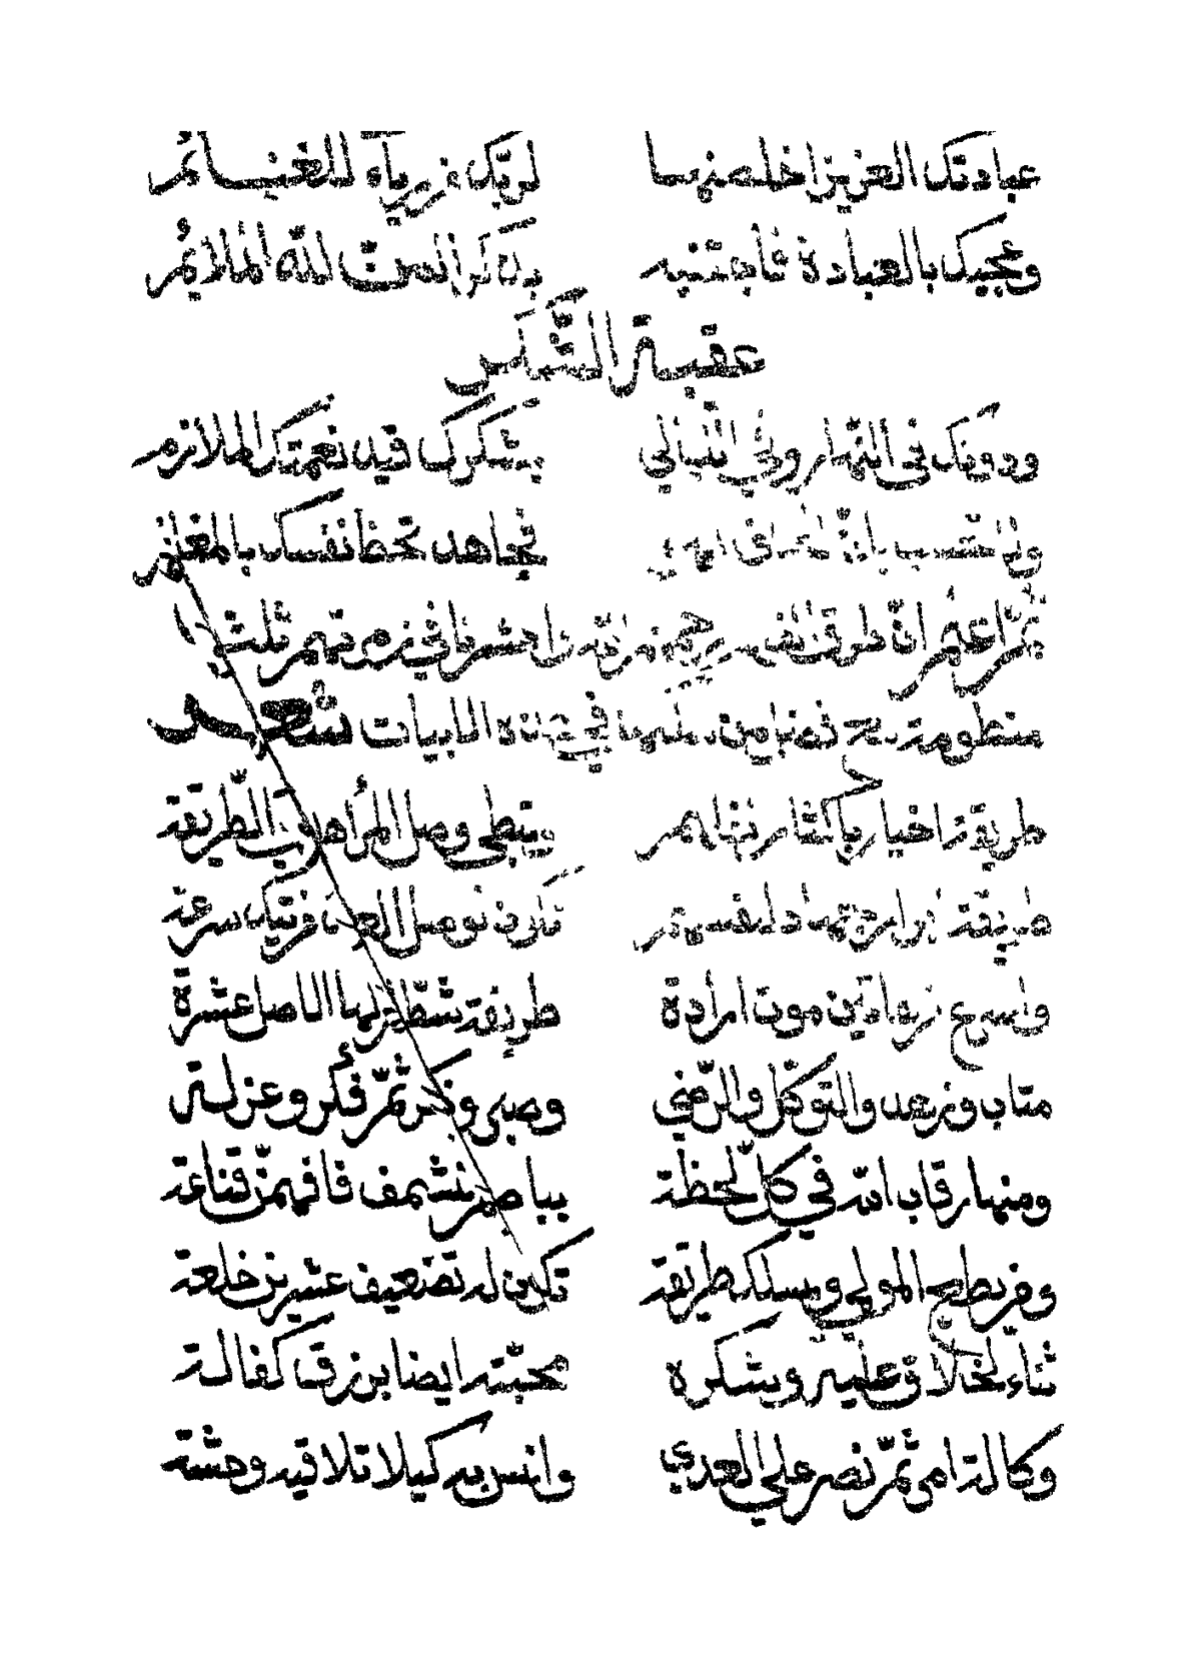 عبادتك العزيز اخلصنها لربك من رياء للغنائم
وعجبك بالعبادة فاجتنبه بذاكر المن لله الملائم
عقبة الشكر
ودونك في النهار وفي الليالي بشكرك فيه نعمتك الملازم
تجاهد تحظ نفسك بالمغانم
ثم اعلم ان طرق فاني نرمتهم ثلث
منظومة في هذه الابيات شعر
طريقة اخيار باكثارها لهم وينطي وصل المرء اهل الطريقة
طريقة ابرار جهاد لنفسهم تكون توصل العبد من قربك سرعة
واسرع زواذين موت ارادة طريقة شطار لها الاصل عشرة
متاب وزهد والتوكل والرضى وصبر وذكر ثم فكر وعزلة
ومنها رقاب الله في كل لحظة بباصر نشمف فافهمن قناعة
ومن يطيع المولى ويسلك طريقة تكون له تضعيف عشرين خلعة
ثناء لخلاق عليه ويشكره محبته ايضا برزق كفالة
وكالة امر ثم نصر على العدي وانس به كيلا تلاقيه وحشة